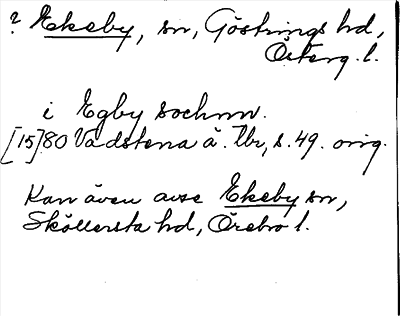 ? Ekeby, sn, Göstrings hd,
Österg. l.
i Egby sochnn.
[15]80 Vadstena ä. Tbr, s. 49. orig.
Kan även avse Ekeby sn,
Sköllersta hd, Örebro l.